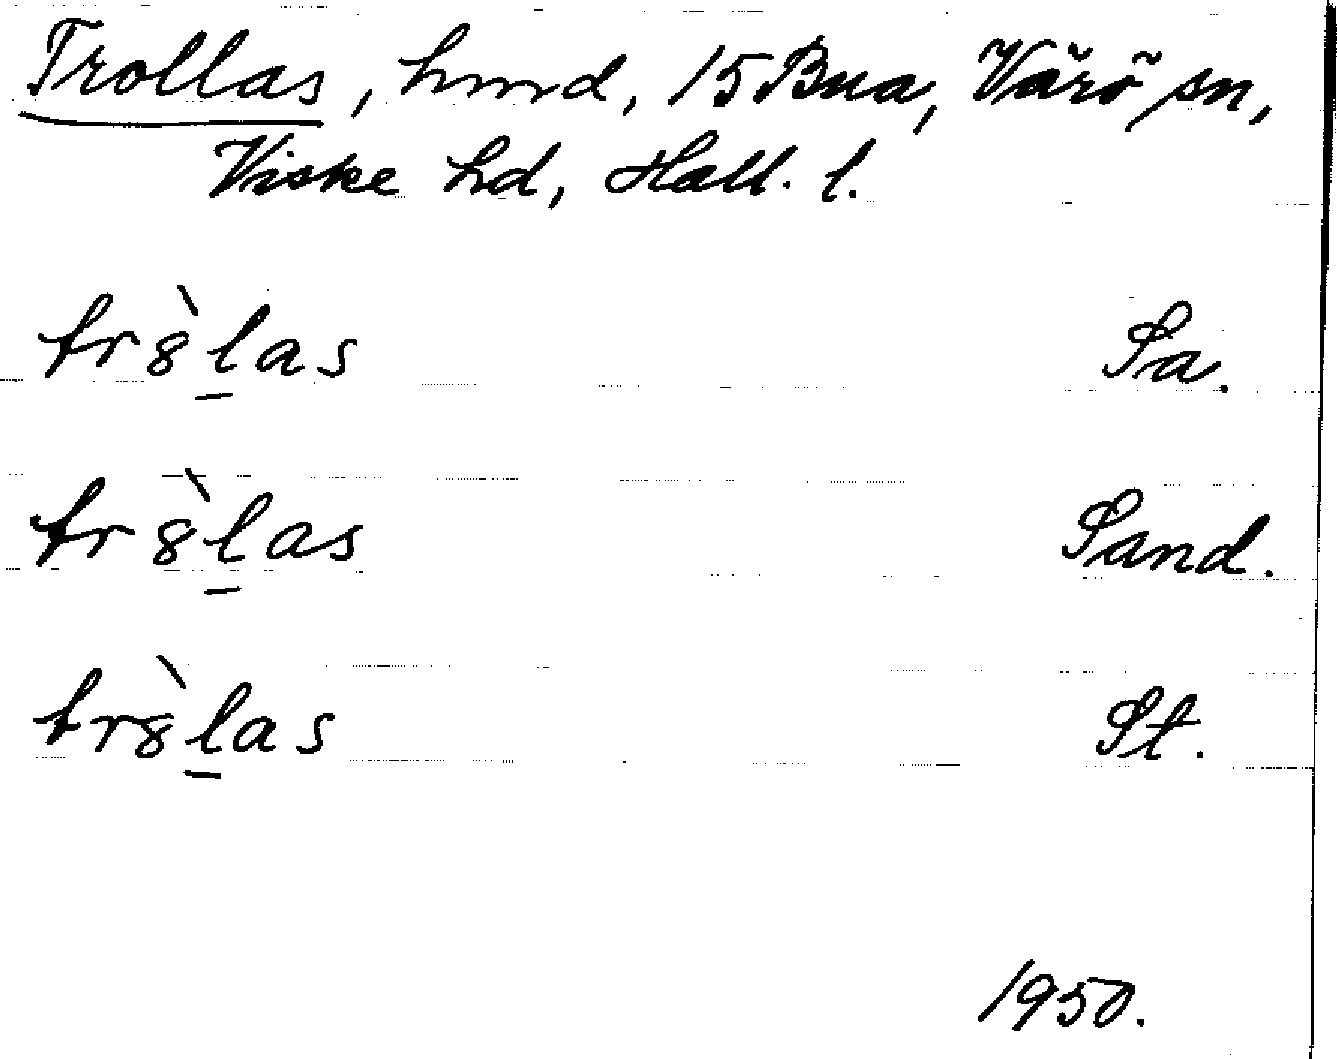 Trollas, hmd, 15 Bua, Värö sn,
Viske hd, Hall. l.
tr8̀l̲as Sa.
tr8̀l̲as Sand.
tr8̀l̲as St.
1950.